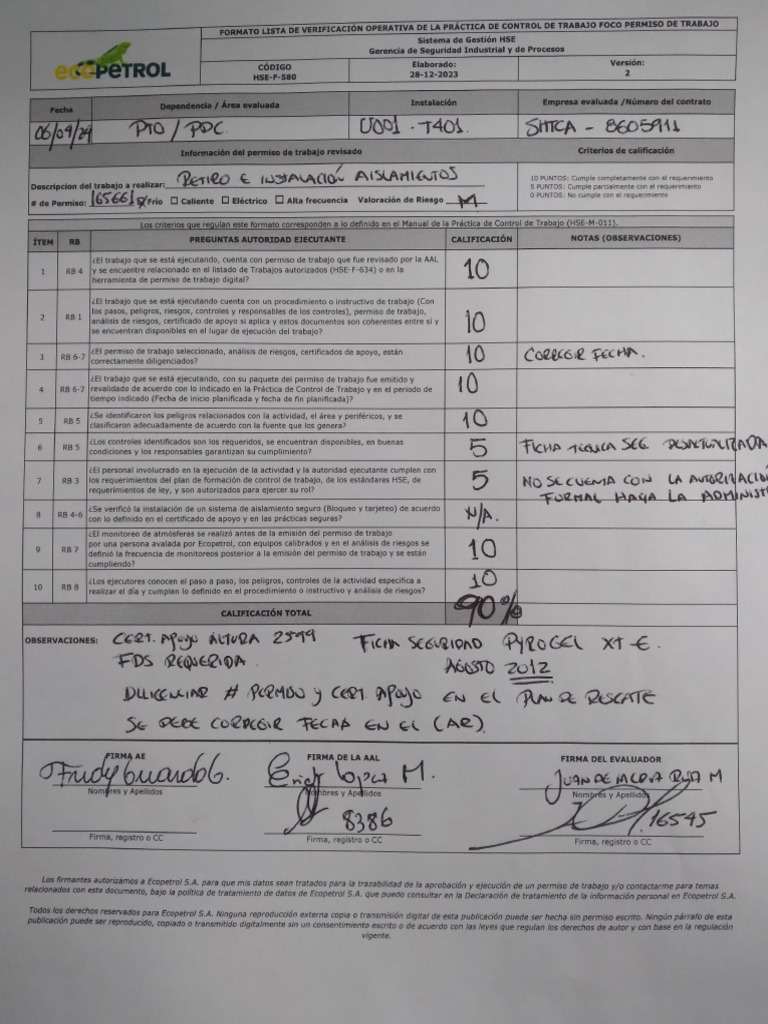 FORMATO LISTA DE VERIFICACIÓN OPERATIVA DE LA PRÁCTICA DE CONTROL DE TRABAJO FOCO PERMISO DE TRABAJO
ecopetrol
Sistema de Gestión HSE
Gerencia de Seguridad Industrial y de Procesos
CÓDIGO
HSE-F-580
Elaborado:
28-12-2023
Versión:
2
Fecha
Dependencia / Área evaluada
Instalación
Empresa evaluada /Número del contrato
06/09/24
PTO / PDC
U001 - T401
SMTCA - 8605911
Información del permiso de trabajo revisado
Criterios de calificación
Descripcion del trabajo a realizar: RETIRO E INSTALACIÓN AISLAMIENTOS
# de Permiso: 165661 Frío ☐ Caliente ☐ Eléctrico ☐ Alta frecuencia Valoración de Riesgo M
10 PUNTOS: Cumple completamente con el requerimiento
5 PUNTOS: Cumple parcialmente con el requerimiento
0 PUNTOS: No cumple con el requerimiento
Los criterios que regulan este formato corresponden a lo definido en el Manual de la Práctica de Control de Trabajo (HSE-M-011).
ÍTEM RB PREGUNTAS AUTORIDAD EJECUTANTE CALIFICACIÓN NOTAS (OBSERVACIONES)
1 RB 4 ¿El trabajo que se está ejecutando, cuenta con permiso de trabajo que fue revisado por la AAL
y se encuentre relacionado en el listado de Trabajos autorizados (HSE-F-634) o en la
herramienta de permiso de trabajo digital?
10
2 RB 1 ¿El trabajo que se está ejecutando cuenta con un procedimiento o instructivo de trabajo (Con
los pasos, peligros, riesgos, controles y responsables de los controles), permiso de trabajo,
análisis de riesgos, certificado de apoyo si aplica y estos documentos son coherentes entre si y
se encuentran disponibles en el lugar de ejecución del trabajo?
10
3 RB 6-7 ¿El permiso de trabajo seleccionado, análisis de riesgos, certificados de apoyo, están
correctamente diligenciados?
10 CORREGIR FECHA.
4 RB 6-7 ¿El trabajo que se está ejecutando, con su paquete del permiso de trabajo fue emitido y
revalidado de acuerdo con lo indicado en la Práctica de Control de Trabajo y en el periodo de
tiempo indicado (Fecha de inicio planificada y fecha de fin planificada)?
10
5 RB 5 ¿Se identificaron los peligros relacionados con la actividad, el área y periféricos, y se
clasificaron adecuadamente de acuerdo con la fuente que los genera?
10
6 RB 5 ¿Los controles identificados son los requeridos, se encuentran disponibles, en buenas
condiciones y los responsables garantizan su cumplimiento?
5 FICHA TÉCNICA SEG DESACTUALIZADA
7 RB 3 ¿El personal involucrado en la ejecución de la actividad y la autoridad ejecutante cumplen con
los requerimientos del plan de formación de control de trabajo, de los estándares HSE, de
requerimientos de ley, y son autorizados para ejercer su rol?
5 NO SE CUENTA CON LA AUTORIZACIÓN
FORMAL HAGA LA ADMINIST
8 RB 4-6 ¿Se verificó la instalación de un sistema de aislamiento seguro (Bloqueo y tarjeteo) de acuerdo
con lo definido en el certificado de apoyo y en las prácticas seguras?
N/A.
9 RB 7 ¿El monitoreo de atmósferas se realizó antes de la emisión del permiso de trabajo
por una persona avalada por Ecopetrol, con equipos calibrados y en el análisis de riesgos se
definió la frecuencia de monitoreos posterior a la emisión del permiso de trabajo y se están
cumpliendo?
10
10 RB 8 ¿Los ejecutores conocen el paso a paso, los peligros, controles de la actividad especifica a
realizar el día y cumplen lo definido en el procedimiento o instructivo y análisis de riesgos?
10
CALIFICACIÓN TOTAL 90%
OBSERVACIONES: CERT. APOYO ALTURA 2599 FICHA SEGURIDAD PYROGEL XT-E.
FDS REQUERIDA. AGOSTO 2012
DILIGENCIAR # PERMISO y CERT. APOYO EN EL PLAN DE RESCATE
SE DEBE CORREGIR FECHAS EN EL (AR).
FIRMA AE
FIRMA DE LA AAL
FIRMA DEL EVALUADOR
Fredy Guardo G.
Erick Lopez M.
JUAN DE LA CRUZ M
Nombres y Apellidos
Nombres y Apellidos
Nombres y Apellidos
8386
16545
Firma, registro o CC
Firma, registro o CC
Firma, registro o CC
Los firmantes autorizamos a Ecopetrol S.A. para que mis datos sean tratados para la trazabilidad de la aprobación y ejecución de un permiso de trabajo y/o contactarme para temas
relacionados con este documento, bajo la política de tratamiento de datos de Ecopetrol S.A. que puedo consultar en la Declaración de tratamiento de la información personal en Ecopetrol S.A.
Todos los derechos reservados para Ecopetrol S.A. Ninguna reproducción externa copia o transmisión digital de esta publicación puede ser hecha sin permiso escrito. Ningún párrafo de esta
publicación puede ser reproducido, copiado o transmitido digitalmente sin un consentimiento escrito o de acuerdo con las leyes que regulan los derechos de autor y con base en la regulación
vigente.